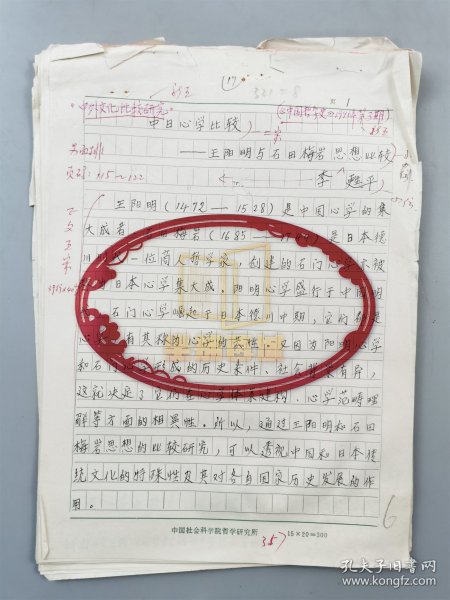 (17)
1
中外文化比较研究。
《中国哲学史》1991年第3期
中日心学比较
——王阳明与石田梅岩思想比较
李甦平
另面排
页码：115～122
王阳明（1472——1528）是中国心学的集
大成者。石田梅岩（1685——
）是日本德
川时
一位商人哲学家，创建的石门心学被
日本心学集大成。阳明心学盛行于中国明
石门心学崛起于日本德川中期，它们都是
心
有其称为心学的共性。又因为阳明心学
和石门
形成的历史条件、社会背景有异，
这就决定了它们在心学体系建构、心学范畴理
解等方面的相异性。所以，通过王阳明和石田
梅岩思想的比较研究，可以透视中国和日本传
统文化的特殊性及其对各自国家历史发展的作
用。
6
中国社会科学院哲学研究所
357
15×20=300
孔夫子旧书网
www.kongfz.com